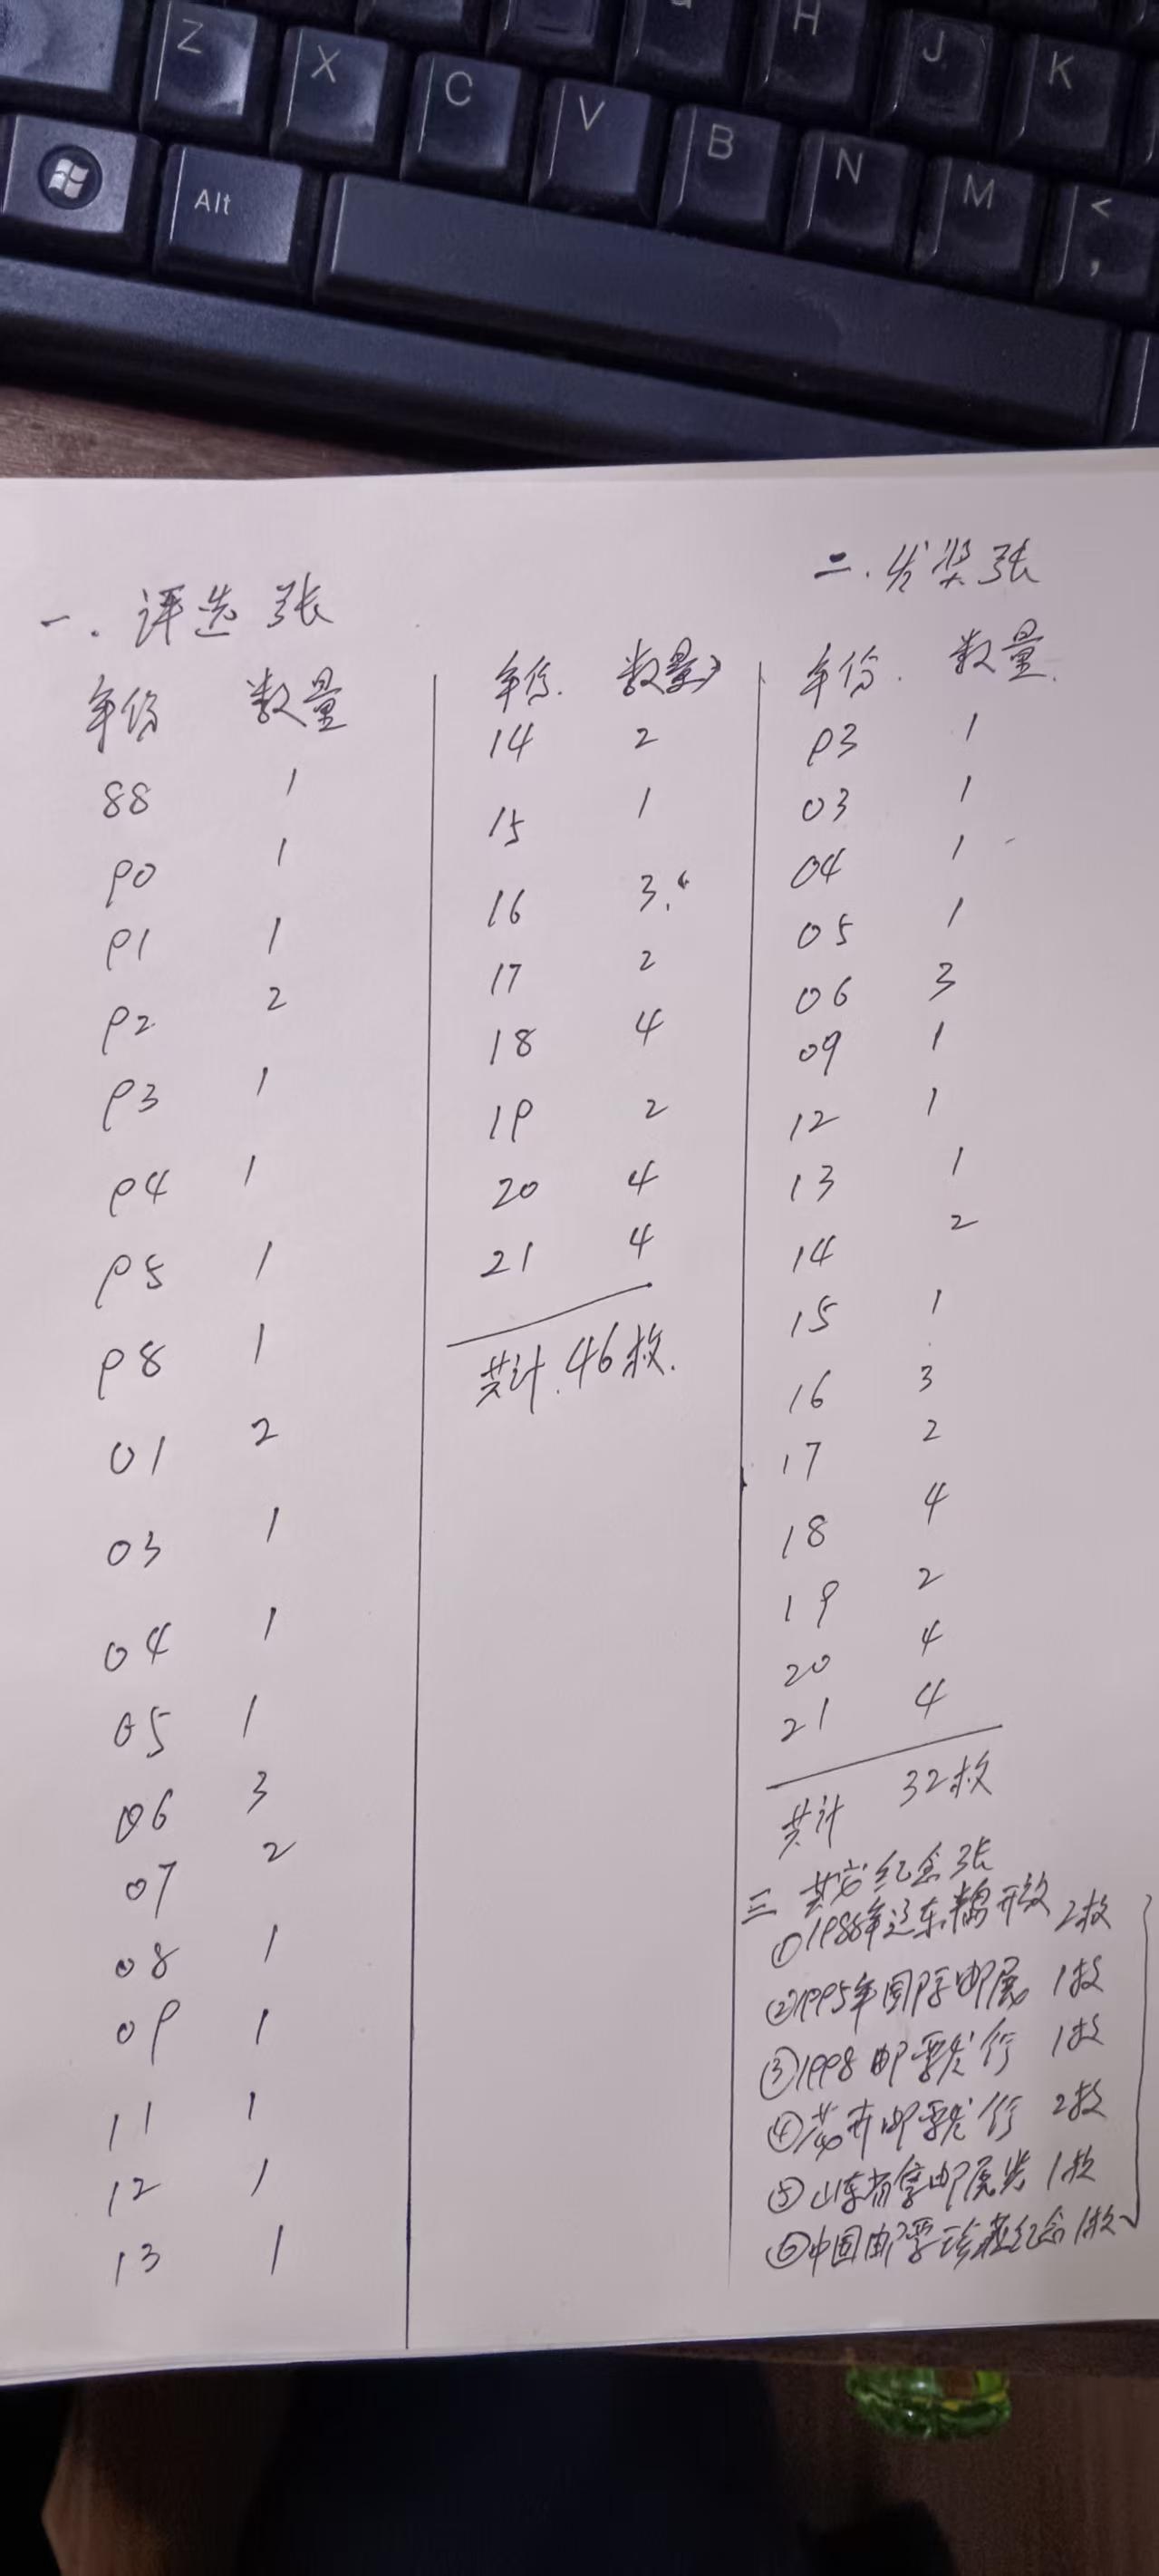 Z X C V B N M <
H J K
Alt
,
一. 评选张
年份 数量
88 1
90 1
91 1
92 2
93 1
94 1
95 1
98 1
01 2
03 1
04 1
05 1
06 3
07 2
08 1
09 1
11 1
12 1
13 1
年份. 数量
14 2
15 1
16 3.
17 2
18 4
19 2
20 4
21 4
共计.46枚.
二. 发奖张
年份. 数量.
93 1
03 1
04 1
05 1
06 3
09 1
12 1
13 1
14 2
15 1
16 3
17 2
18 4
19 2
20 4
21 4
共计 32枚
三 其它纪念张
①1988年辽东半岛开放 2枚
②1995年国际邮展 1枚
③1998邮票发行 1枚
④ 邮票发行 2枚
⑤山东省集邮展览 1枚
⑥中国邮票珍藏纪念1枚